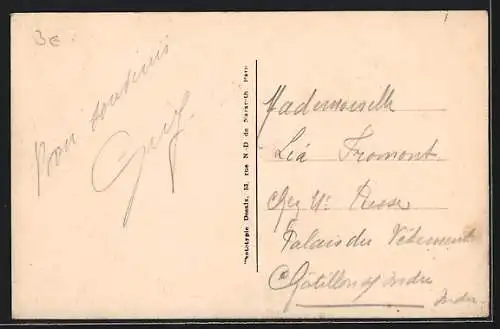 3€
Bon souvenir
Guy
Phototypie Desaix, 13, rue N.-D. de Nazareth Paris
Mademoiselle
Léa Fromont
Chez Mr
Palais du Vêtement
Châtillon s/ Indre
Indre